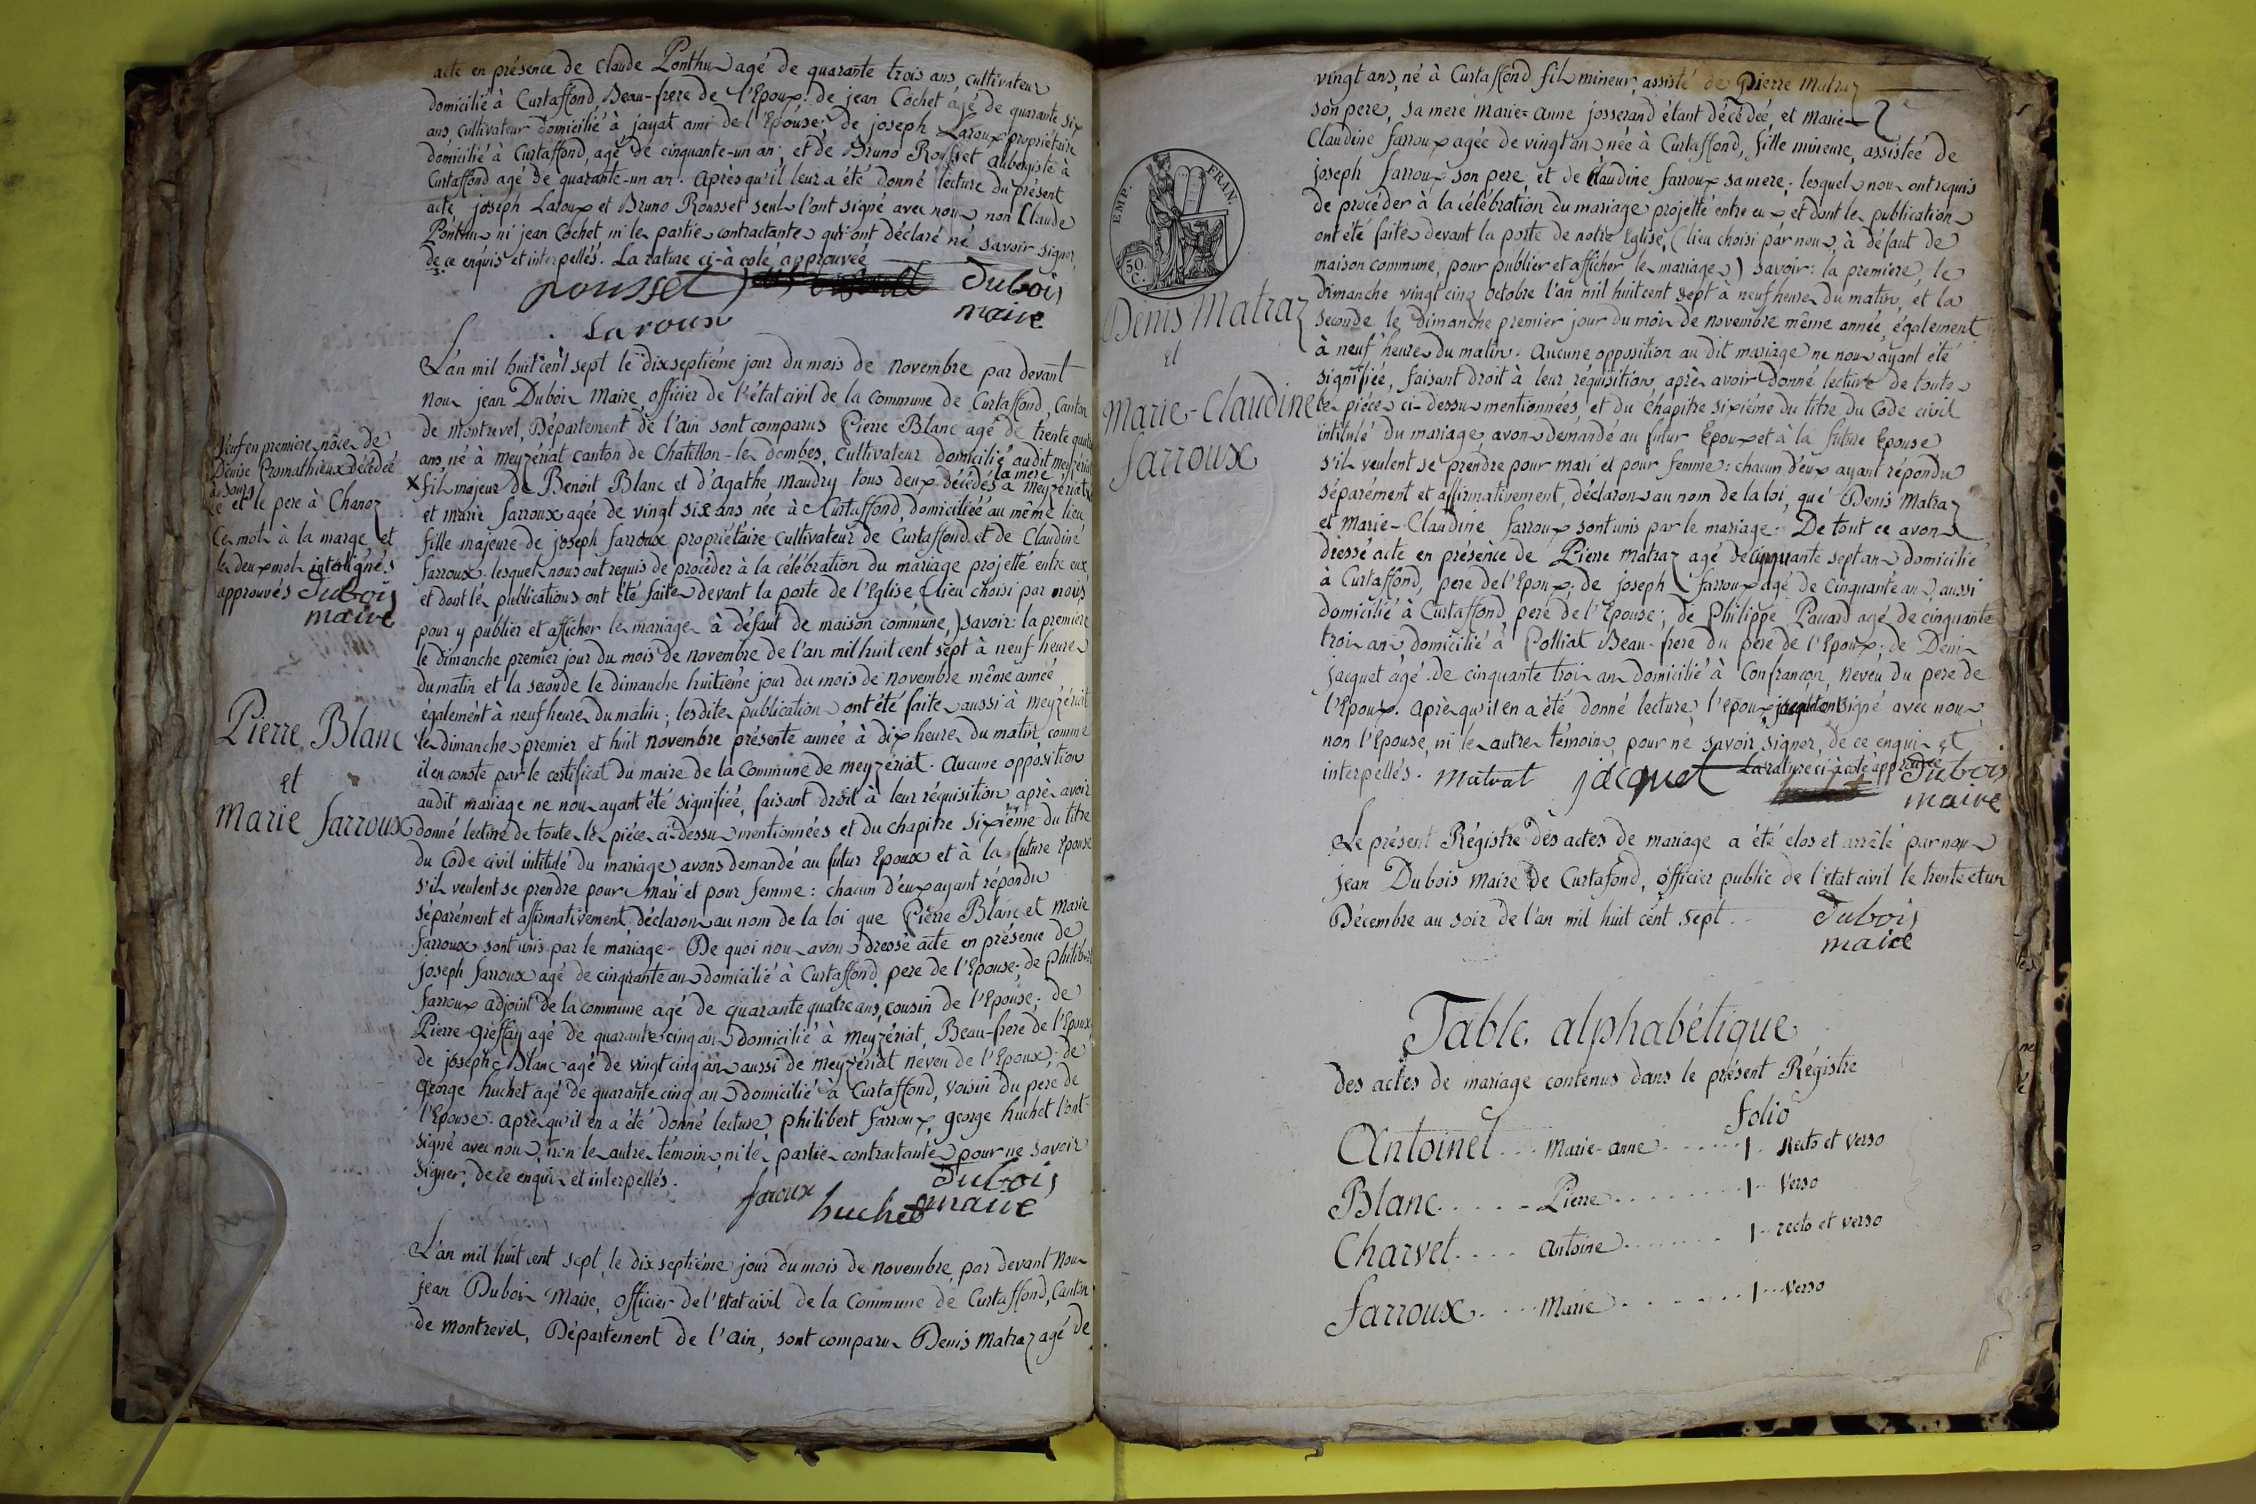 acte en présence de Claude Ponthus agé de quarante trois ans, cultivateur
domicilié à Curtaffond, Beau-frere de l'Epoux; de jean Cochet agé de quarante six
ans cultivateur domicilié à jayat ami de l'Epouse; de joseph Laroux propriétaire
domicilié à Curtaffond, agé de cinquante-un an; et de Bruno Rousset aubergiste à
Curtaffond agé de quarante-un an. Après qu'il leur a été donné lecture du présent
acte, joseph Laroux et Bruno Rousset seuls l'ont signé avec nous non Claude
Ponthus ni jean Cochet ni les parties contractantes qui ont déclaré ne savoir signer,
de ce enquis et interpellés. La rature ci-à coté approuvée
rousset Dubois
maire
Laroux
L'an mil huit cent sept le dix septième jour du mois de novembre par devant
nous jean Dubois Maire, officier de l'état civil de la Commune de Curtaffond, Canton
de Montrevel, Département de l'ain sont comparus Pierre Blanc agé de trente quatre
ans, né à meyzériat canton de Chatillon-les dombes, Cultivateur domicilié audit meyzériat
la mere
x fils majeur de Benoit Blanc et d'Agathe Maudry tous deux décédés à meyzériat
et marie farroux agée de vingt six ans née à Curtaffond, domiciliée au même lieu
fille majeure de joseph farroux propriétaire Cultivateur de Curtaffond et de Claudine
farroux. lesquels nous ont requis de procéder à la célébration du mariage projetté entre eux
et dont les publications ont été faites devant la porte de l'Eglise (lieu choisi par nous
pour y publier et afficher les mariages à défaut de maison commune,) savoir: la premiere
le dimanche premier jour du mois de novembre de l'an mil huit cent sept à neuf heures
du matin et la seconde le dimanche huitieme jour du mois de novembre même année
également à neuf heures du matin; lesdites publications ont été faites aussi à meyzériat
les dimanches premier et huit novembre présente année à dix heures du matin comme
il en conste par le certificat du maire de la Commune de meyzériat. Aucune opposition
audit mariage ne nous ayant été signifiée, faisant droit à leur réquisition après avoir
donné lecture de toutes les piéces ci-dessus mentionnées et du chapitre sixieme du titre
du Code civil intitulé du mariage, avons demandé au futur Epoux et à la future Epouse
s'ils veulent se prendre pour mari et pour femme: chacun d'eux ayant répondu
séparément et affirmativement, déclarons au nom de la loi que Pierre Blanc et marie
farroux sont unis par le mariage. De quoi nous avons dressé acte en présence de
joseph farroux agé de cinquante ans domicilié à Curtaffond, pere de l'Epouse; de Philibert
farroux adjoint de la commune agé de quarante quatre ans, cousin de l'Epouse; de
Pierre greffay agé de quarante cinq ans domicilié à Meyzériat, Beau-frere de l'Epoux;
de joseph Blanc agé de vingt cinq ans aussi de meyzériat neveu de l'Epoux; de
george huchet agé de quarante cinq ans domicilié à Curtaffond, voisin du pere de
l'Epouse. Après qu'il en a été donné lecture, philibert farroux, george huchet l'ont
signé avec nous, non les autres témoins, ni les parties contractantes pour ne savoir
signer, de ce enquis et interpellés.
faroux huchet Dubois
maire
L'an mil huit cent sept, le dix septiéme jour du mois de novembre, par devant Nous
jean Dubois Maire, officier de l'etat civil de la Commune de Curtaffond, Canton
de montrevel, Département de l'ain, sont comparus Denis matraz agé de
Veuf en premiere nôces de
Denise décédée
et le pere à Chanoz
Ces mots à la marge et
les deux mots interlignés
approuvés Dubois
maire
Pierre Blanc
et
Marie farroux
EMP. FRAN.
50 C.
Denis Matraz
et
Marie-Claudine
farroux
vingt ans, né à Curtaffond fils mineur, assisté de Pierre Matraz
son pere, sa mere Marie-anne josserand étant décédée, et marie
Claudine farroux agée de vingt ans née à Curtaffond, fille mineure, assistée de
joseph farroux son pere, et de Claudine farroux sa mere. lesquels nous ont requis
de procéder à la célébration du mariage projetté entre eux et dont les publications
ont été faites devant la porte de notre Eglise, (lieu choisi par nous à défaut de
maison commune, pour publier et afficher les mariages) savoir: la premiere le
Dimanche vingt cinq Octobre l'an mil huit cent sept à neuf heures du matin, et la
seconde le Dimanche premier jour du mois de novembre même année également
à neuf heures du matin. Aucune opposition au dit mariage ne nous ayant été
signifiée, faisant droit à leur réquisition, après avoir donné lecture de toutes
les piéces ci-dessus mentionnées, et du chapitre sixiéme du titre du Code civil
intitulé du mariage, avons demandé au futur Epoux et à la future Epouse
s'ils veulent se prendre pour mari et pour femme: chacun d'eux ayant répondu
séparément et affirmativement, déclarons au nom de la loi, que Denis Matraz
et Marie-Claudine farroux sont unis par le mariage. De tout ce avons
dressé acte en présence de Pierre matraz agé de cinquante sept ans domicilié
à Curtaffond, pere de l'Epoux; de joseph farroux agé de cinquante ans, aussi
domicilié à Curtaffond, pere de l'Epouse; de Philippe Pauard agé de cinquante
trois ans, domicilié à Polliat Beau-frere du pere de l'Epoux; de Denis
jacquet agé de cinquante trois ans domicilié à Confrançon, neveu du pere de
l'Epoux. Après qu'il en a été donné lecture, l'epoux, jacquet ont signé avec nous
non l'Epouse, ni les autres témoins, pour ne savoir signer, de ce enquis et
interpellés. matrat jacquet La rature ci-à coté approuvée Dubois
maire
Le présent Régistre des actes de mariage a été clos et arrêté par nous
jean Dubois Maire de Curtafond, officier public de l'etat civil le trente et un
Décembre au soir de l'an mil huit cent sept. Dubois
maire
Table alphabétique
des actes de mariage contenus dans le présent Régistre
folio
Antoinet ... Marie-anne ...... 1. Recto et verso
Blanc ..... Pierre ........ 1.. Verso
Charvet .... Antoine ....... 1.. recto et verso
farroux .... Marie ....... 1... verso